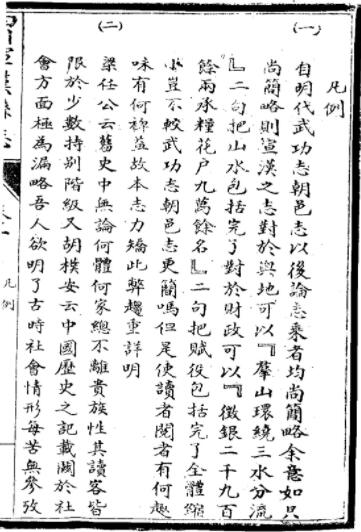 凡例
(一)
自明代武功志朝邑志以後論志乘者均尚簡略余意如只
尚簡略則宣漢之志對於輿地可以『羣山環繞三水分流
』二句把山水包括完了對於財政可以『徵銀二千九百
餘兩承糧花户九萬餘名』二句把賦役包括完了全體縮
小豈不較武功志朝邑志更簡嗎但是使讀者閱者有何趣
味有何裨益故本志力矯此弊趨重詳明
(二)
梁任公云舊史中無論何體何家總不離貴族性其讀客皆
限於少數特别階級又胡樸安云中國歷史之記載關於社
會方面極為漏略吾人欲明了古時社會情形每苦無參攷
宣漢縣志
凡例